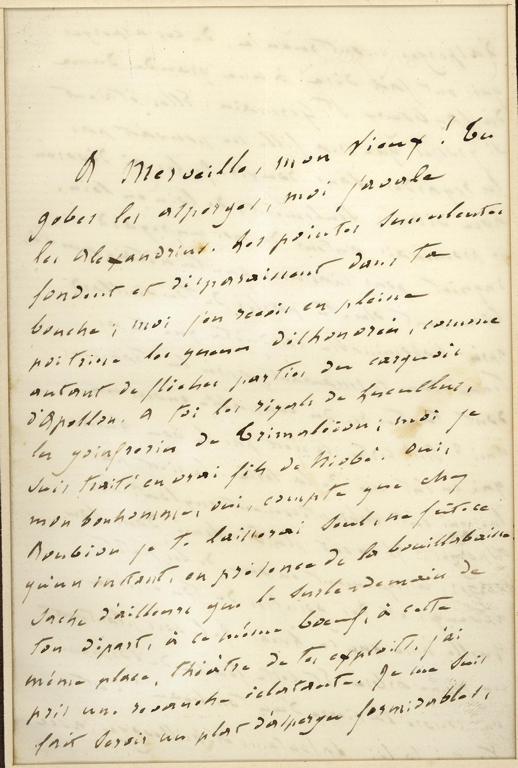 A Merveille, mon vieux ! Tu
gobes les asperges, moi j'avale
les Alexandrins. Les pointes succulentes
fondent et disparaissent dans ta
bouche ; moi j'en reçois en pleine
poitrine les queues déshonorées, comme
autant de flèches parties du carquois
d'Apollon. A toi les régals de Lucullus,
la goinfrerie de Trimalcion ; moi je
suis traité en vrai fils de Niobé. Ouis,
mon bonhomme, oui, compte que chez
Roubion je te laisserai seul, ne fût-ce
qu'un instant, en présence de la bouillabaisse.
Sache d'ailleurs que le surlendemain de
ton départ, à ce même bœuf, à cette
même place, théâtre de tes exploits, j'ai
pris une revanche éclatante. Je me suis
fait servir un plat d'asperges formidables,